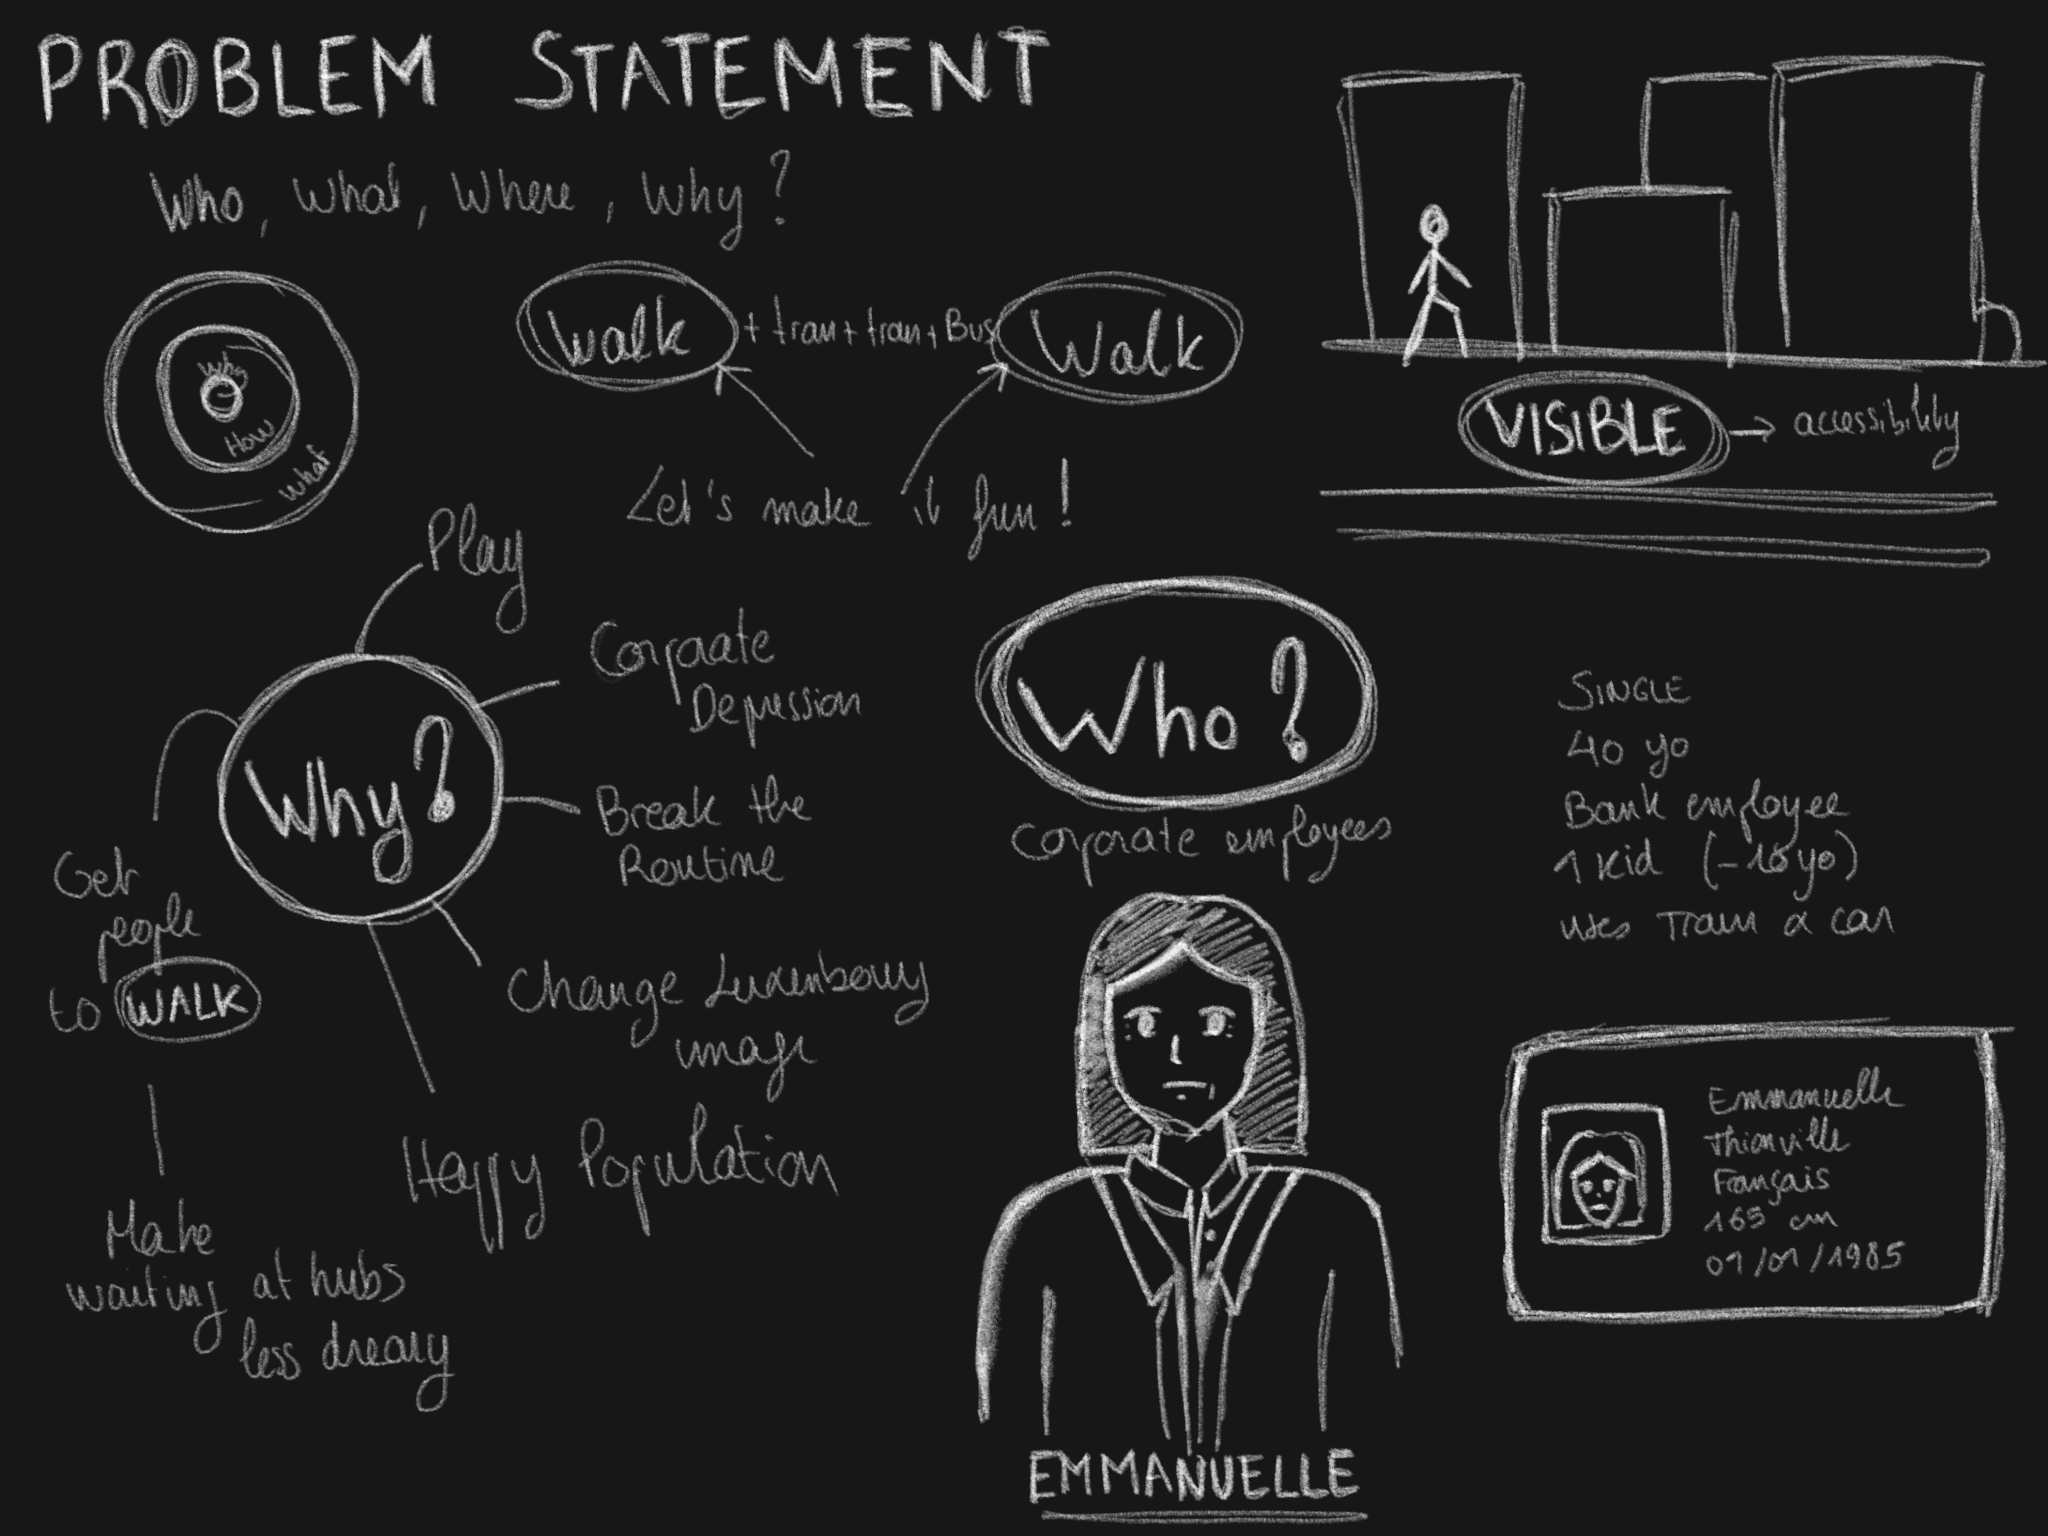 PROBLEM STATEMENT
Who, What, Where, Why?
Why
How
What
Walk + tran + tran + Bus Walk
Let's make it fun!
VISIBLE → accessibility
Why?
Play
Corporate
Depression
Break the
Routine
Change Luxembourg
image
Happy Population
Get
people
to WALK
Make
waiting at hubs
less dreary
Who?
Corporate employees
EMMANUELLE
SINGLE
40 yo
Bank employee
1 kid (-16yo)
uses Train & car
Emmanuelle
Thionville
Français
165 cm
01/01/1985